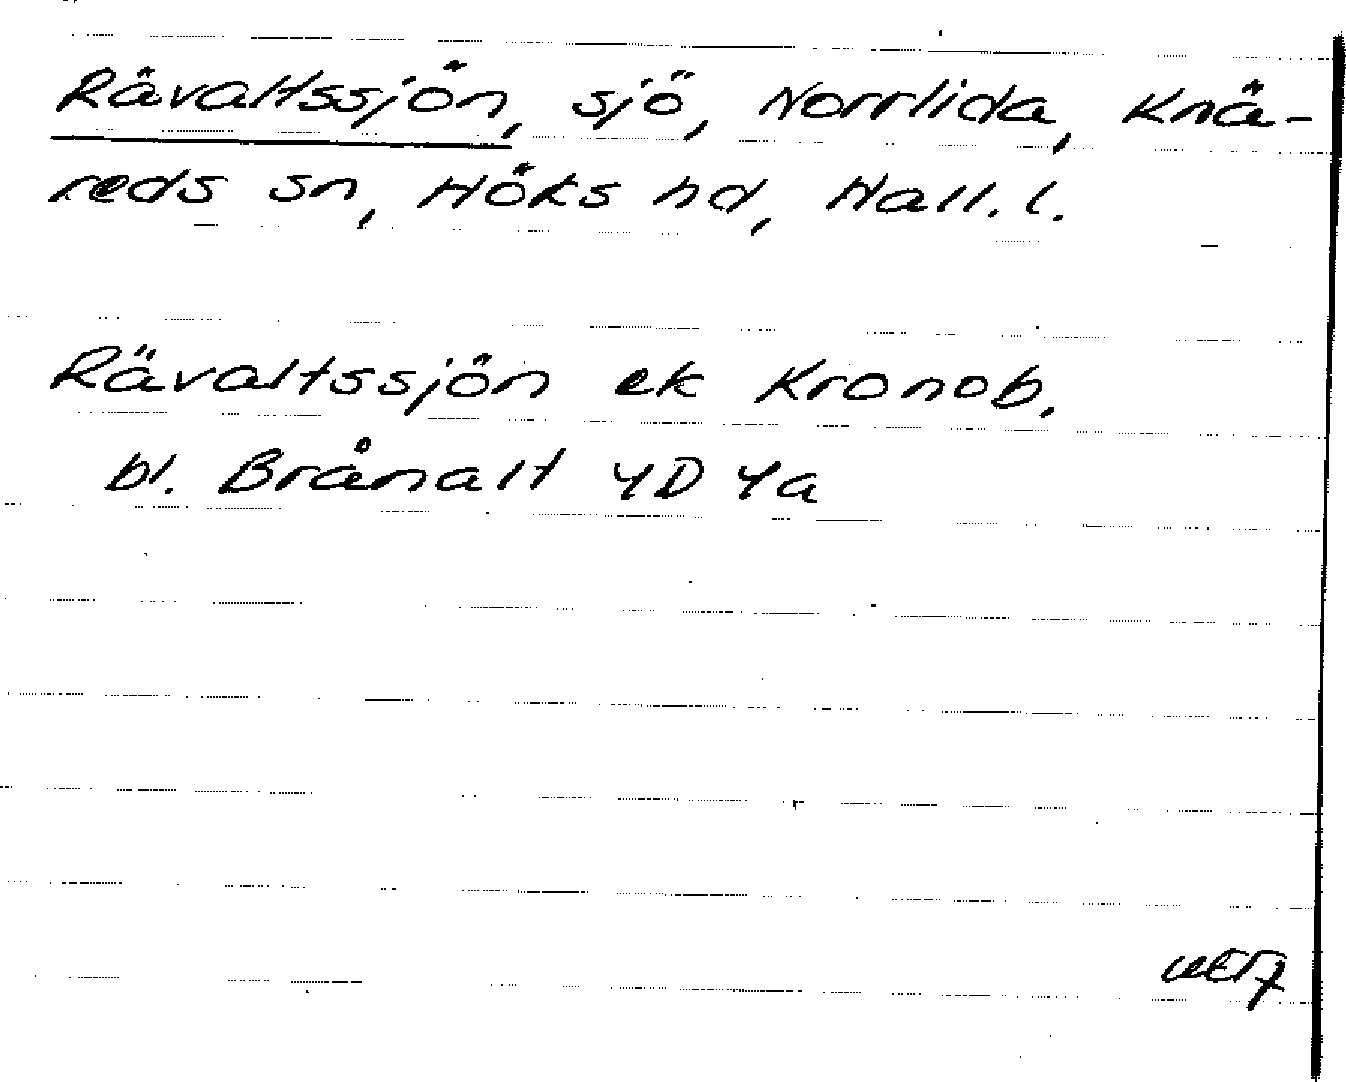 Rävaltssjön, sjö, Norrlida, Knä-
reds sn, Höks hd, Hall. l.
Rävaltssjön ek Kronob.
bl. Brånalt 4D 4a